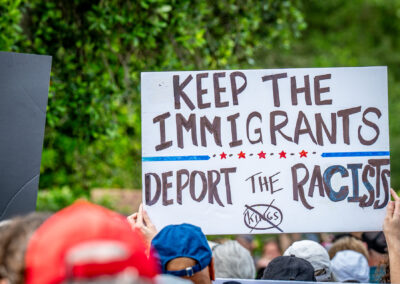 KEEP THE
IMMIGRANTS
DEPORT THE RACISTS
KINGS